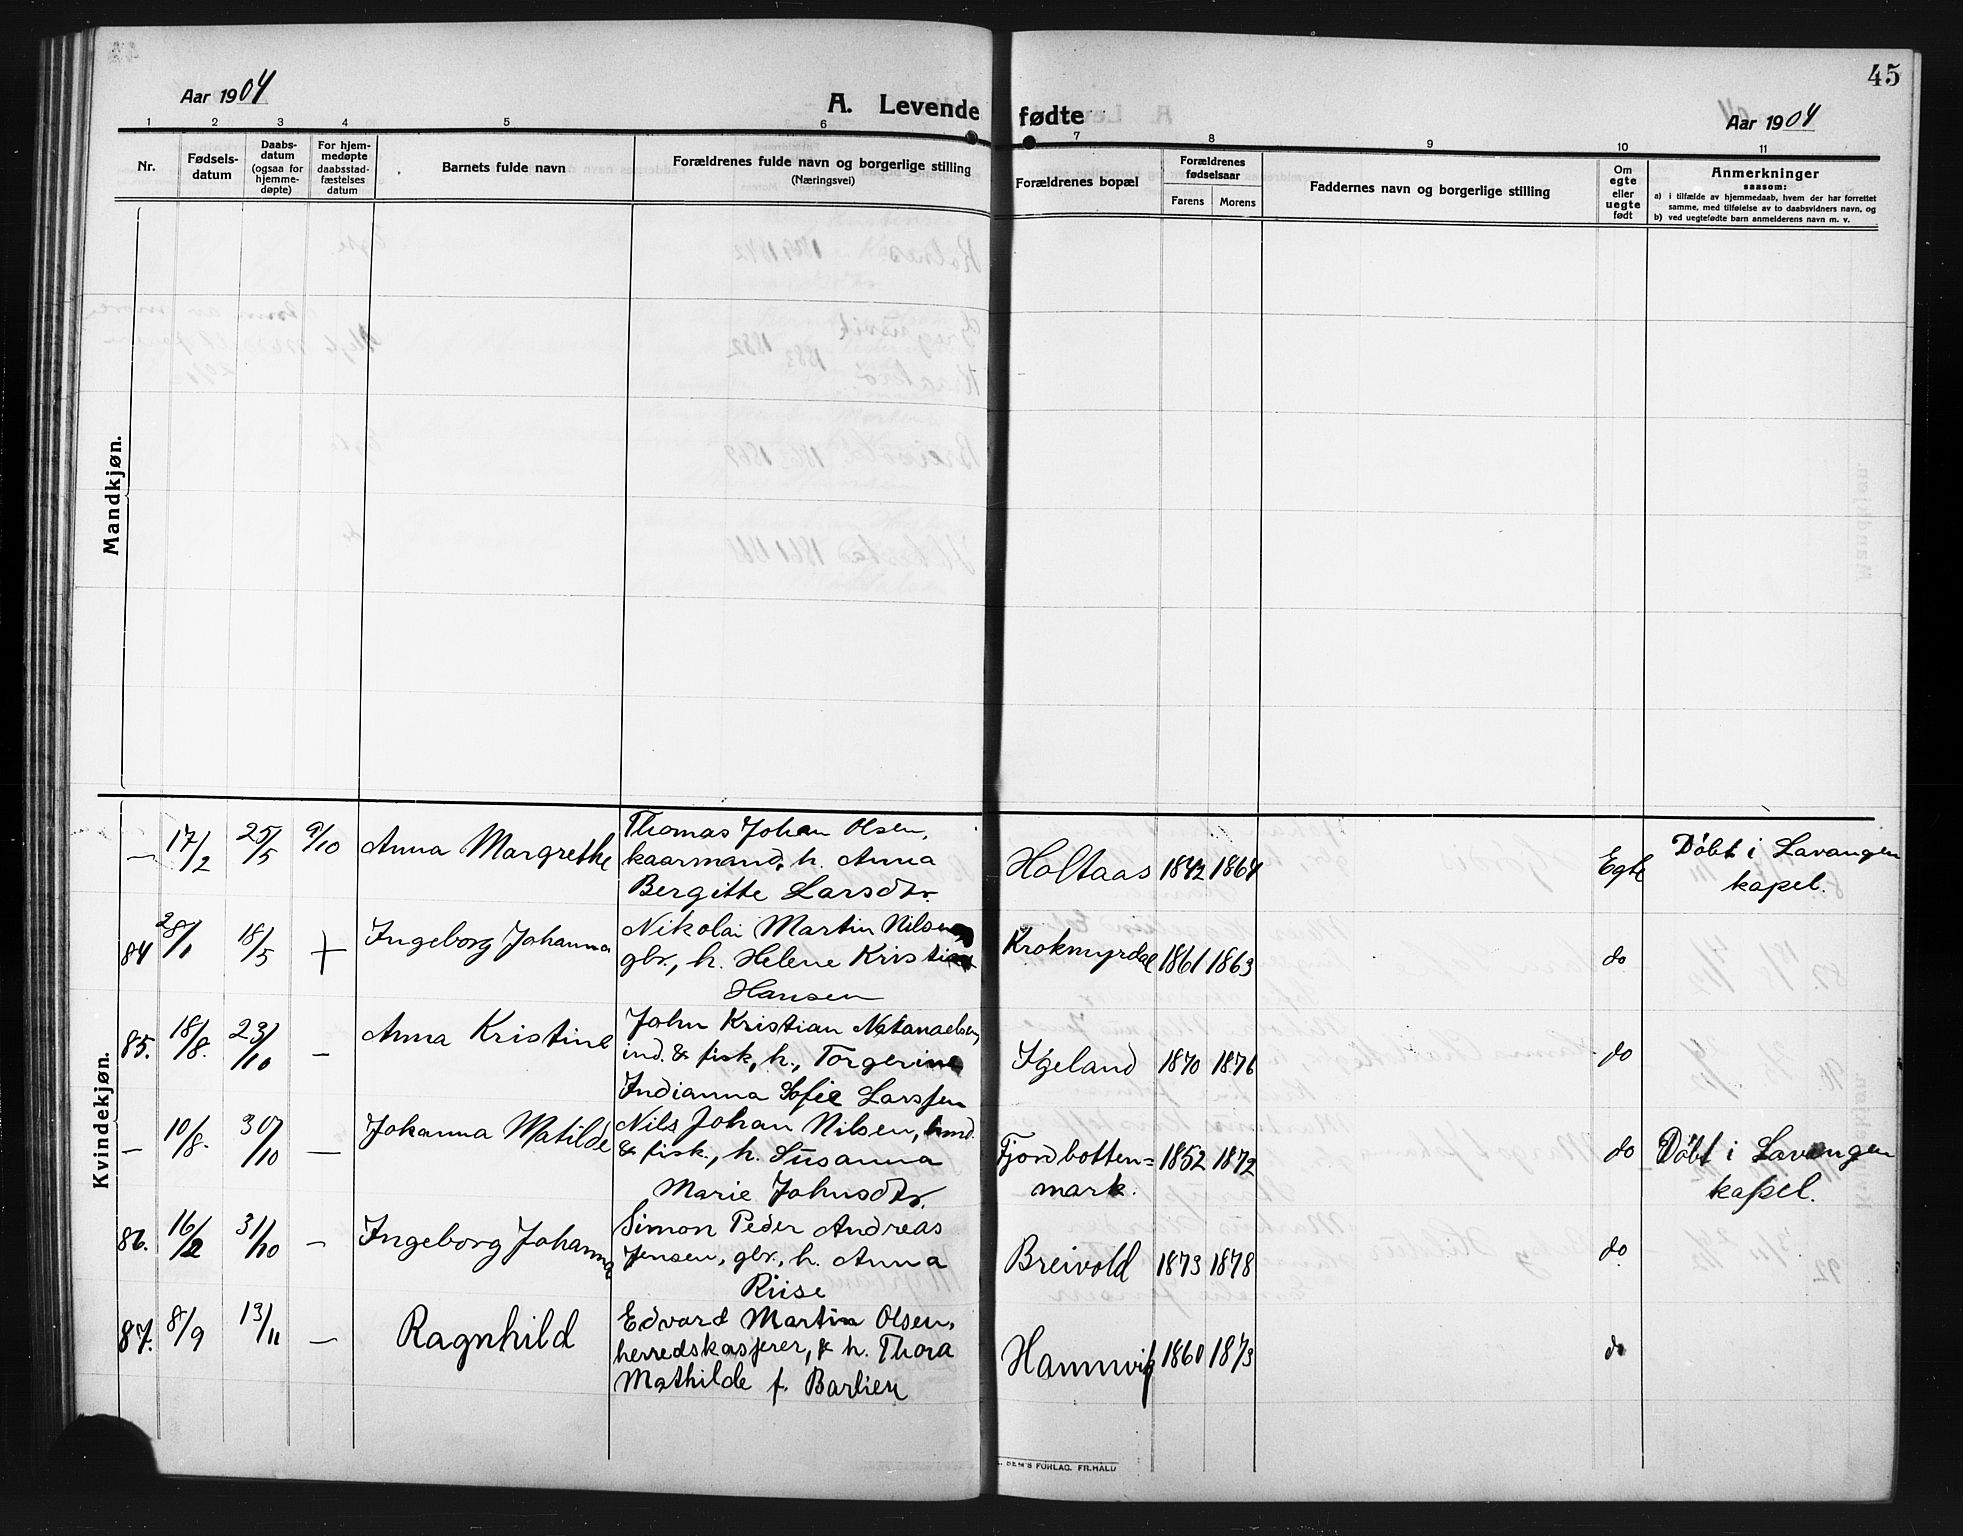 45
Aar 1904
A. Levende fødte
Aar 1904
1 2 3 4 5 6 7 8 9 10 11
Nr.
Fødsels-
datum
Daabs-
datum
(ogsaa for
hjemme-
døpte)
For hjem-
medøpte
daabsstad-
fæstelses
datum
Barnets fulde navn
Forældrenes fulde navn og borgerlige stilling
(Næringsvei)
Forældrenes bopæl
Forældrenes
fødselsaar
Farens Morens
Faddernes navn og borgerlige stilling
Om
egte
eller
uegte
født
Anmerkninger
saasom:
a) i tilfælde av hjemmedaab, hvem der har forrettet
samme, med tilføielse av to daabsvidners navn, og
b) ved uegtefødte barn anmelderens navn m. v.
Mandkjøn.
Kvindekjøn.
— 17/2 25/5 9/10 Anna Margrethe
Thomas Johan Olsen,
kaarmand, h. Anna
Bergitte Larsdtr.
Holtaas 1842 1864 Egte
Döbt i Lavangen
kapel.
84 28/1 18/5 + Ingeborg Johanna
Nikolai Martin Nilsen,
gbr., h. Helene Kristian
Hansen
Krokmyrdal 1861 1863 do
85. 18/8. 23/10 — Anna Kristine
John Kristian Natanaelsen,
ind. & fisk, h., Torgerine
Indianna Sofie Larssen
Igeland 1870 1876 do
— 10/8. 30/10 — Johanna Matilde
Nils Johan Nilsen, ind.
& fisk., h. Susanna
Marie Johnsdtr.
Fjordbotten=
mark. 1852 1872 do
Döbt i Lavangen
kapel.
86. 16/2 31/10 — Ingeborg Johanna
Simon Peder Andreas
Jensen, gbr., h. Anna
Riise
Breivold 1873 1878 do.
87. 8/9 13/11 — Ragnhild
Edvard Martin Olsen,
herredskasserer, & h. Thora
Mathilde f. Barlien
Hamnvik 1860 1873 do
SEM'S FORLAG. FR.HALD